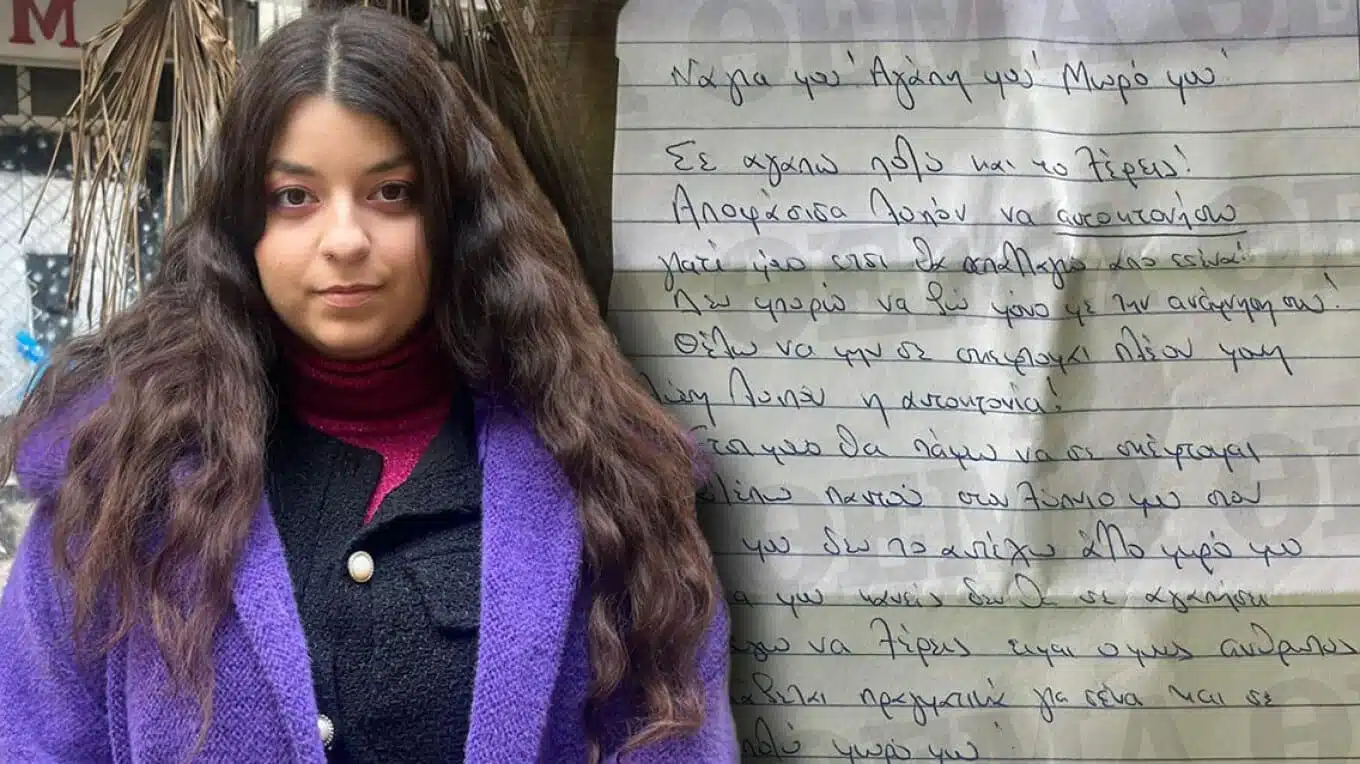 M
Νάγια μου! Αγάπη μου! Μωρό μου!
Σε αγαπώ πολύ και το ξέρεις!
Αποφάσισα λοιπόν να αυτοκτονήσω
γιατί μόνο έτσι θα απαλλαγώ από εσένα!
Δεν μπορώ να ζω μόνο με την ανάμνηση σου!
Θέλω να μην σε σκέφτομαι πλέον
λύση λοιπόν η αυτοκτονία!
Έτσι μόνο θα πάψω να σε σκέφτομαι
βλέπω παντού στον ύπνο μου στον
μου δεν το αντέχω άλλο μωρό μου
μου κανείς δεν θα σε αγαπήσει
να ξέρεις είμαι ο μόνος άνθρωπος
πραγματικά για σένα και σε
πολύ μωρό μου!
ΘΕΜΑ